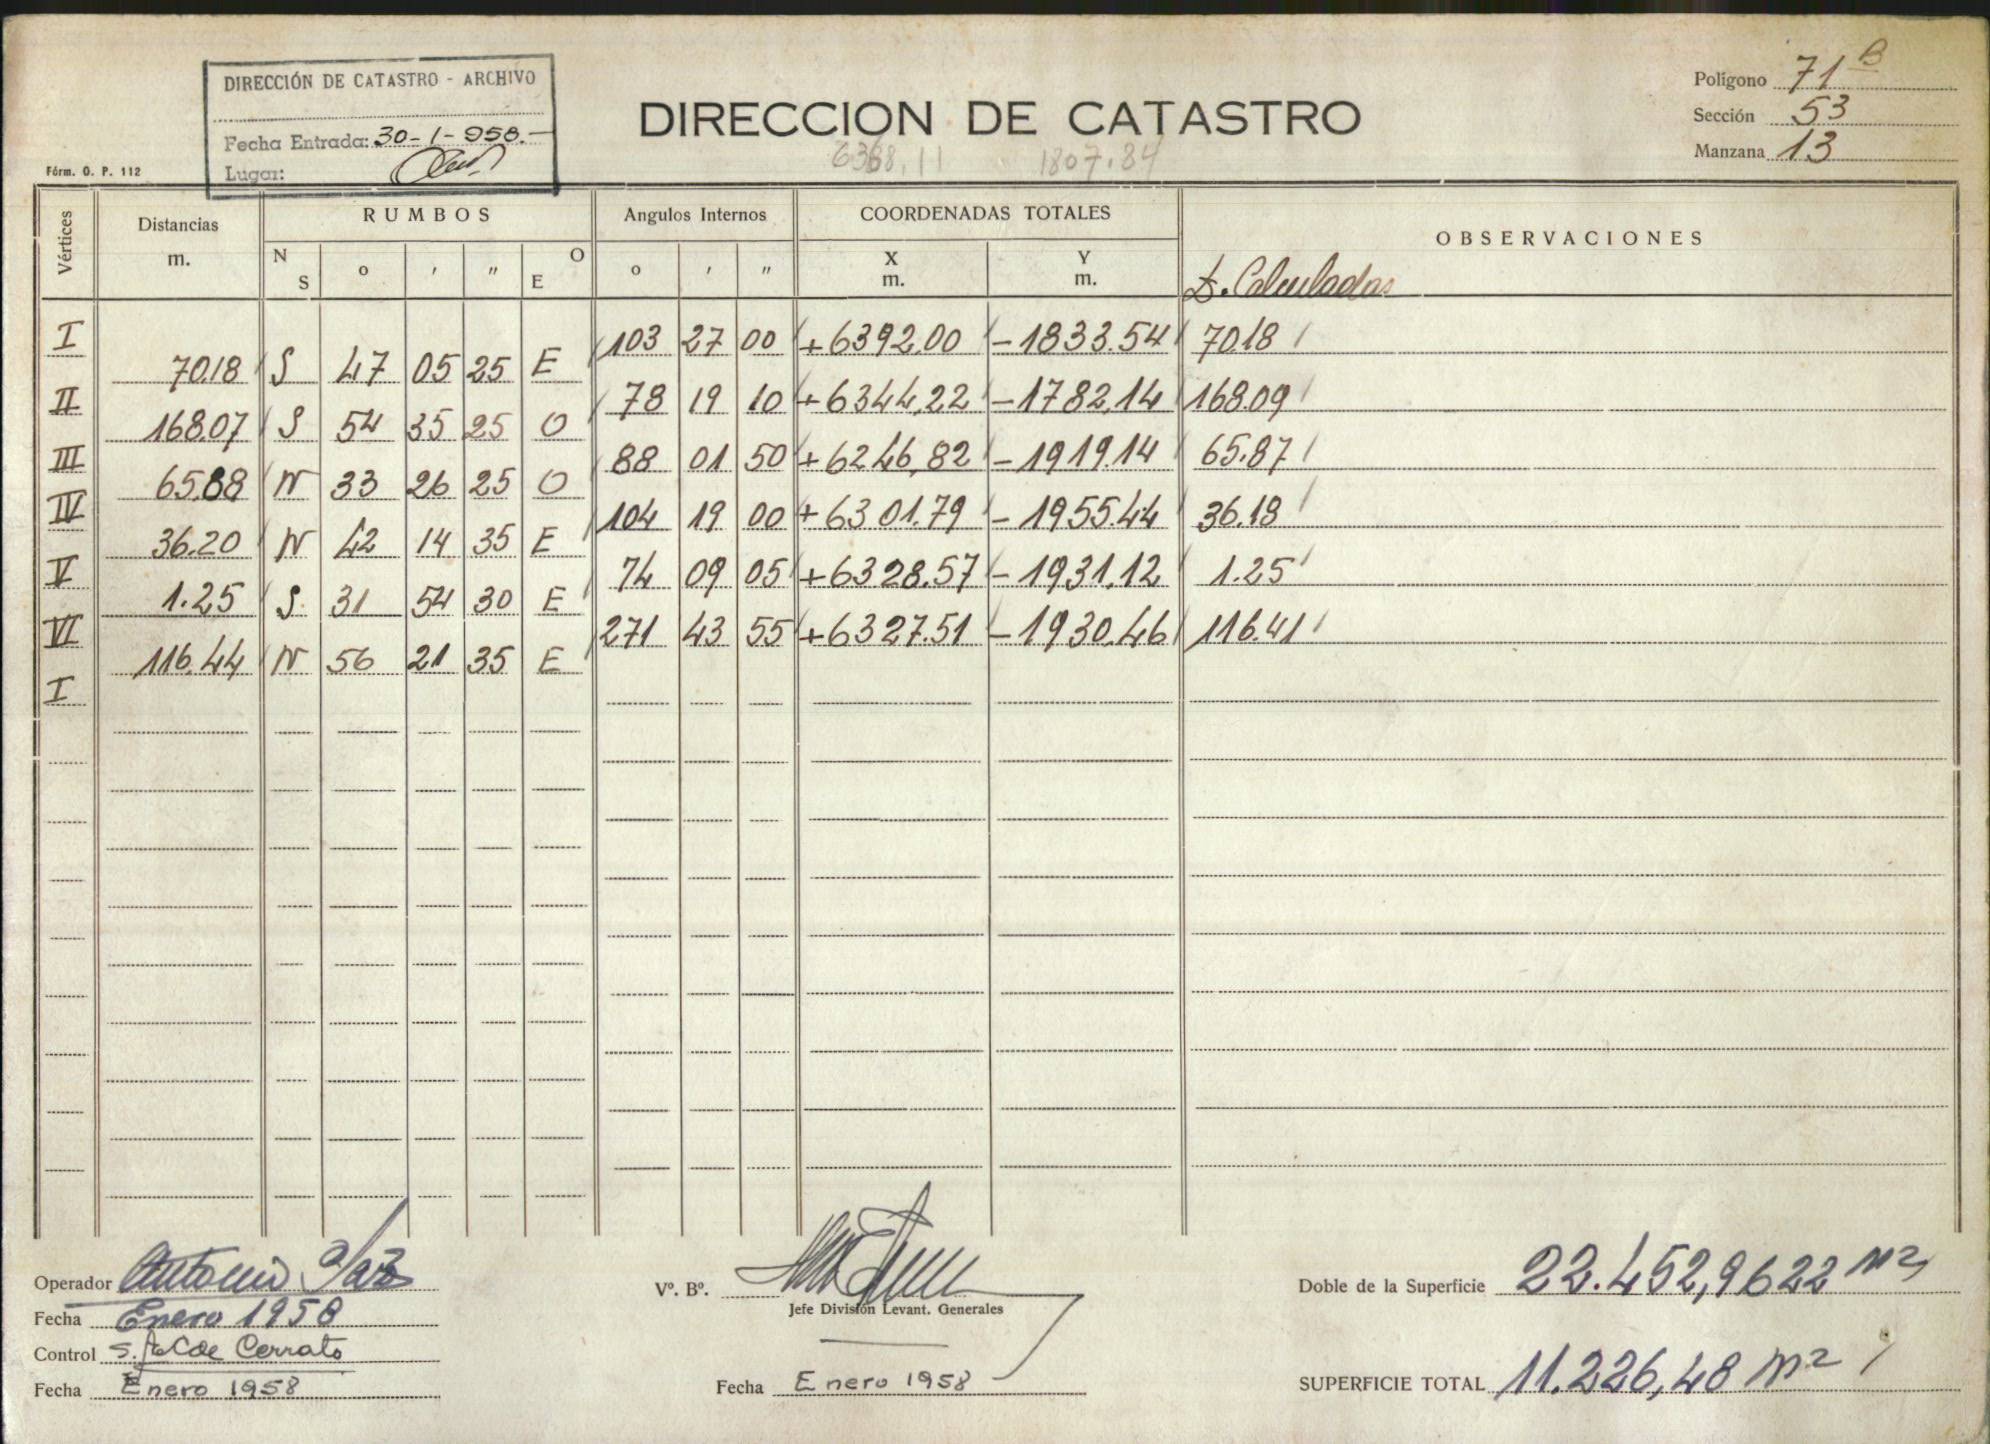 DIRECCIÓN DE CATASTRO - ARCHIVO
Fecha Entrada: 30-1-958.-
Lugar:
Fórm. O. P. 112
DIRECCION DE CATASTRO
6368,11 1807.84
Polígono 71 B
Sección 53
Manzana 13
Vértices Distancias m. RUMBOS Angulos Internos COORDENADAS TOTALES OBSERVACIONES
N S o ' " O E o ' " X m. Y m. D. Calculadas
I 103 27 00 +6392.00 -1833.54 70.18
70.18 S 47 05 25 E
II 78 19 10 +6344,22 -1782,14 168.09
168.07 S 54 35 25 O
III 88 01 50 +6246,82 -1919.14 65.87
65.88 N 33 26 25 O
IV 104 19 00 +6301.79 -1955.44 36.18
36.20 N 42 14 35 E
V 74 09 05 +6328.57 -1931.12 1.25
1.25 S 31 54 30 E
VI 271 43 55 +6327.51 -1930.46 116.41
116.44 N 56 21 35 E
I
Operador Antonio
Fecha Enero 1958
Control S. de Cerrato
Fecha Enero 1958
Vº. Bº.
Jefe División Levant. Generales
Fecha Enero 1958
Doble de la Superficie 22.452,9622 m2
SUPERFICIE TOTAL 11.226,48 m2